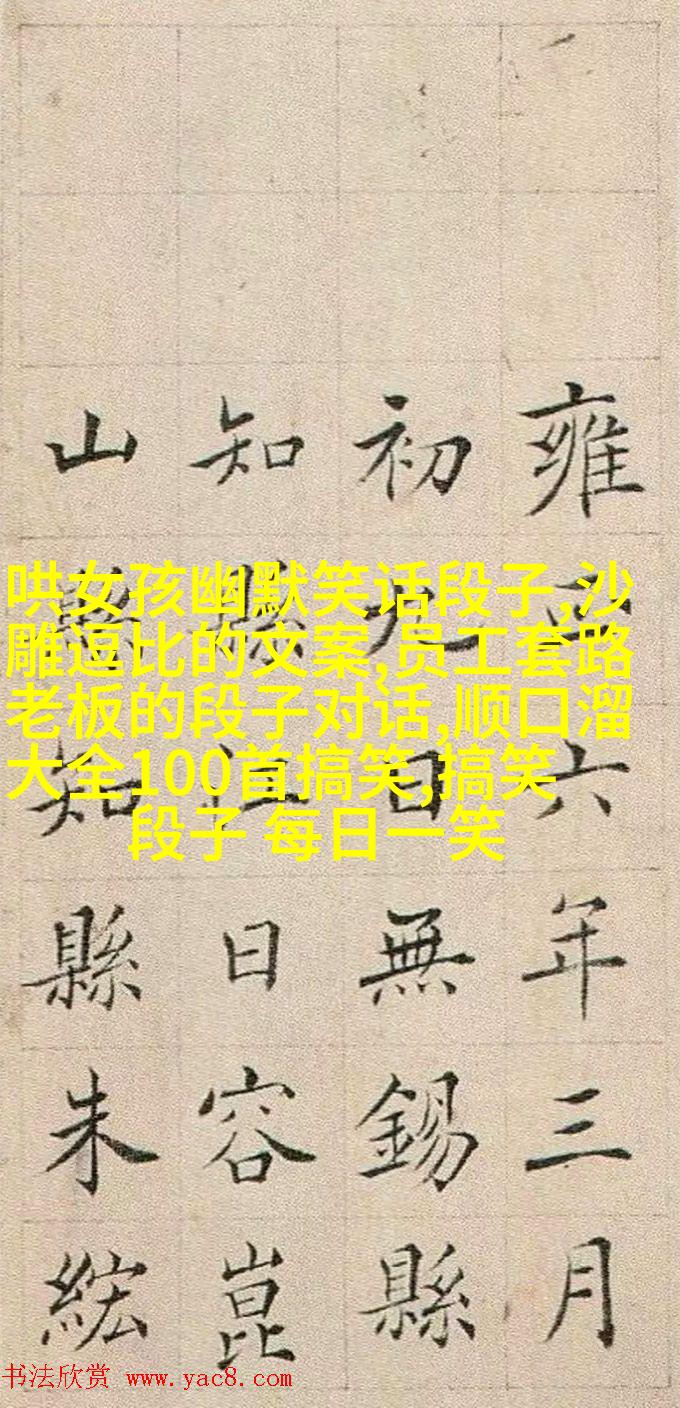 雍正六年三月
初九日無錫縣
知縣江日容崑
山縣知縣朱紘
哄女孩幽默笑话段子,沙
雕逗比的文案,员工套路
老板的段子对话,顺口溜
大全100首搞笑,搞笑
段子 每日一笑
书法欣赏 www.yac8.com